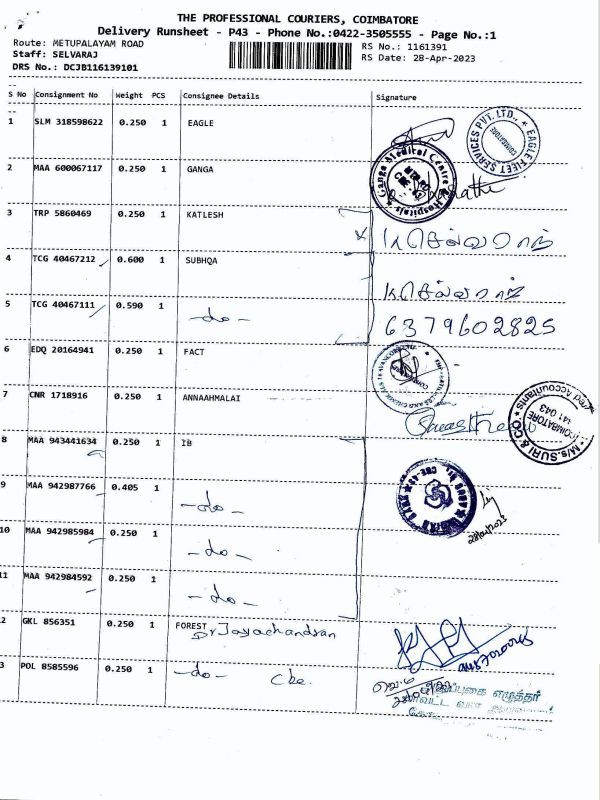 THE PROFESSIONAL COURIERS, COIMBATORE
Delivery Runsheet - P43 - Phone No.:0422-3505555 - Page No.:1
Route: METUPALAYAM ROAD
RS No.: 1161391
Staff: SELVARAJ
RS Date: 28-Apr-2023
DRS No.: DCJB116139101
S No Consignment No Weight PCS Consignee Details Signature
1 SLM 318598622 0.250 1 EAGLE
EAGLE FLEET SERVICES PVT. LTD., * COIMBATORE
2 MAA 600067117 0.250 1 GANGA
Ganga Medical Centre & Hospitals
3 TRP 5860469 0.250 1 KATLESH
4 TCG 40467212 0.600 1 SUBHQA
5 TCG 40467111 0.590 1 -do-
6379602825
6 EDQ 20164941 0.250 1 FACT
7 CNR 1718916 0.250 1 ANNAAHMALAI
* M/s. SURI & CO. * Accountants
COIMBATORE
641 043
8 MAA 943441634 0.250 1 IB
9 MAA 942987766 0.405 1 -do-
10 MAA 942985984 0.250 1 -do-
11 MAA 942984592 0.250 1 -do-
2 GKL 856351 0.250 1 FOREST
Dr Jayachandran
3 POL 8585596 0.250 1 -do- Cbe.
எழுத்தர்